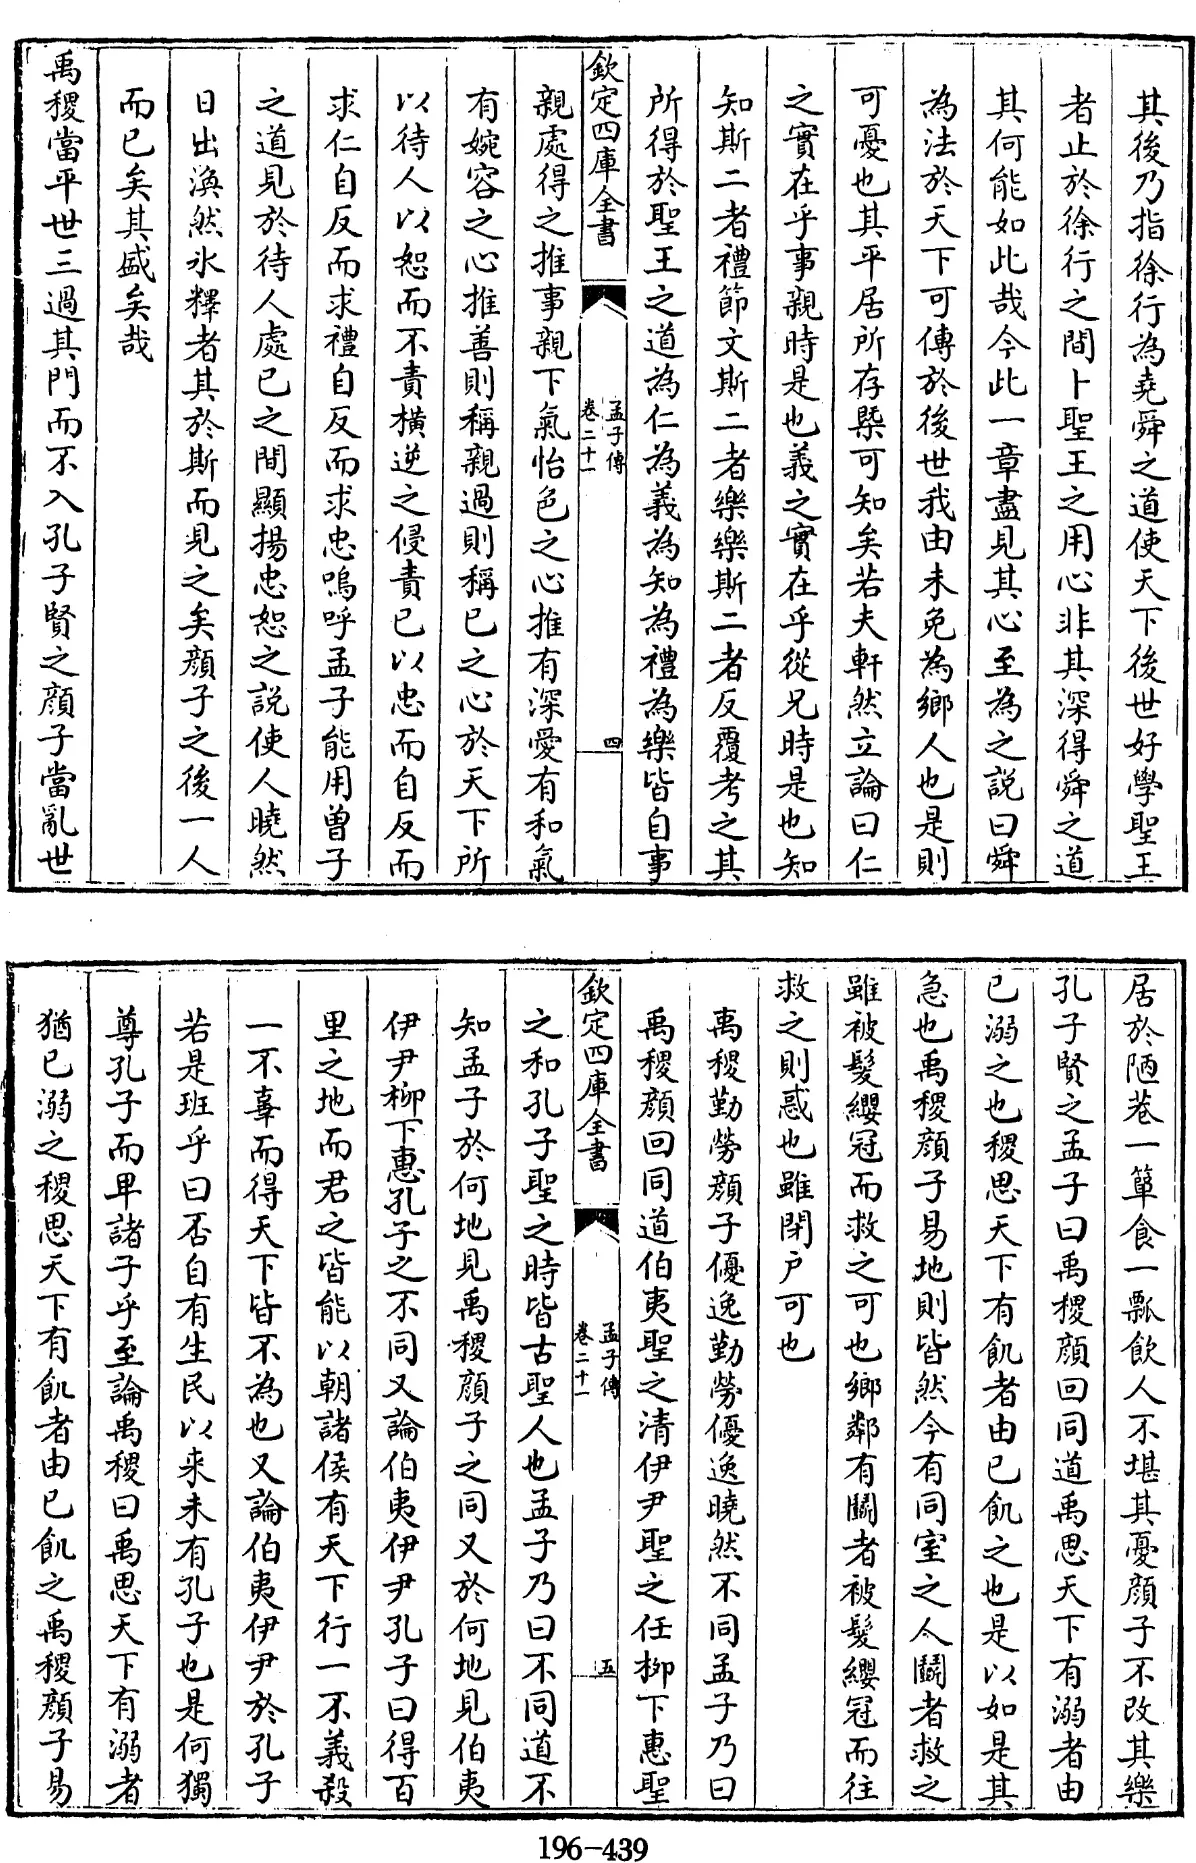 其後乃指徐行為堯舜之道使天下後世好學聖王
者止於徐行之間卜聖王之用心非其深得舜之道
其何能如此哉今此一章盡見其心至為之説曰舜
為法於天下可傳於後世我由未免為鄉人也是則
可憂也其平居所存槩可知矣若夫軒然立論曰仁
之實在乎事親時是也義之實在乎從兄時是也知
知斯二者禮節文斯二者樂樂斯二者反覆考之其
所得於聖王之道為仁為義為知為禮為樂皆自事
欽定四庫全書
孟子傳
卷二十一
四
親處得之推事親下氣怡色之心推有深愛有和氣
有婉容之心推善則稱親過則稱已之心於天下所
以待人以恕而不責橫逆之侵責已以忠而自反而
求仁自反而求禮自反而求忠嗚呼孟子能用曾子
之道見於待人處已之間顯揚忠恕之説使人曉然
日出渙然氷釋者其於斯而見之矣顔子之後一人
而已矣其盛矣哉
禹稷當平世三過其門而不入孔子賢之顔子當亂世
居於陋巷一簞食一瓢飲人不堪其憂顔子不改其樂
孔子賢之孟子曰禹稷顔回同道禹思天下有溺者由
已溺之也稷思天下有飢者由已飢之也是以如是其
急也禹稷顔子易地則皆然今有同室之人鬭者救之
雖被髮纓冠而救之可也鄉鄰有鬭者被髮纓冠而往
救之則惑也雖閉户可也
禹稷勤勞顔子優逸勤勞優逸曉然不同孟子乃曰
禹稷顔回同道伯夷聖之清伊尹聖之任柳下惠聖
欽定四庫全書
孟子傳
卷二十一
五
之和孔子聖之時皆古聖人也孟子乃曰不同道不
知孟子於何地見禹稷顔子之同又於何地見伯夷
伊尹柳下惠孔子之不同又論伯夷伊尹孔子曰得百
里之地而君之皆能以朝諸侯有天下行一不義殺
一不辜而得天下皆不為也又論伯夷伊尹於孔子
若是班乎曰否自有生民以来未有孔子也是何獨
尊孔子而卑諸子乎至論禹稷曰禹思天下有溺者
猶已溺之稷思天下有飢者由已飢之禹稷顔子易
196-439